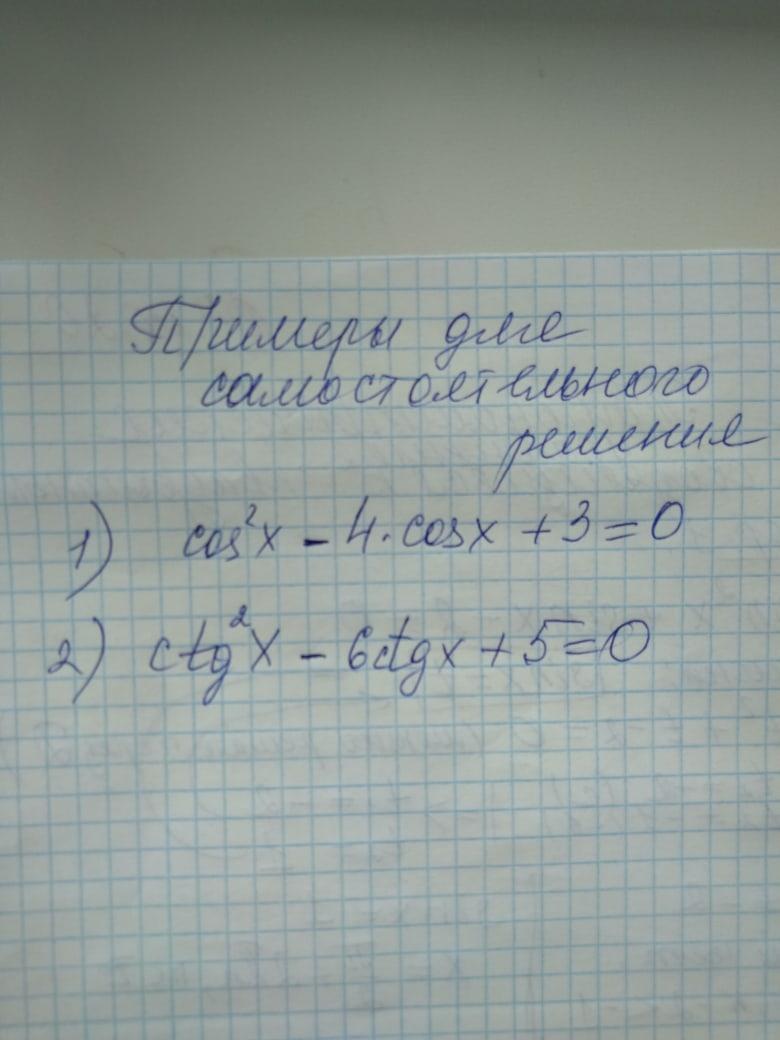 Примеры для
самостоятельного
решения
1) cos²x - 4·cosx + 3 = 0
2) ctg²x - 6ctgx + 5 = 0